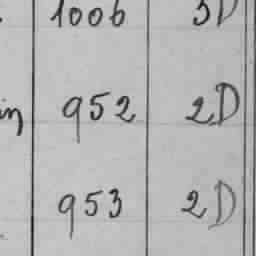 1006 3D
in 952 2D
953 2D